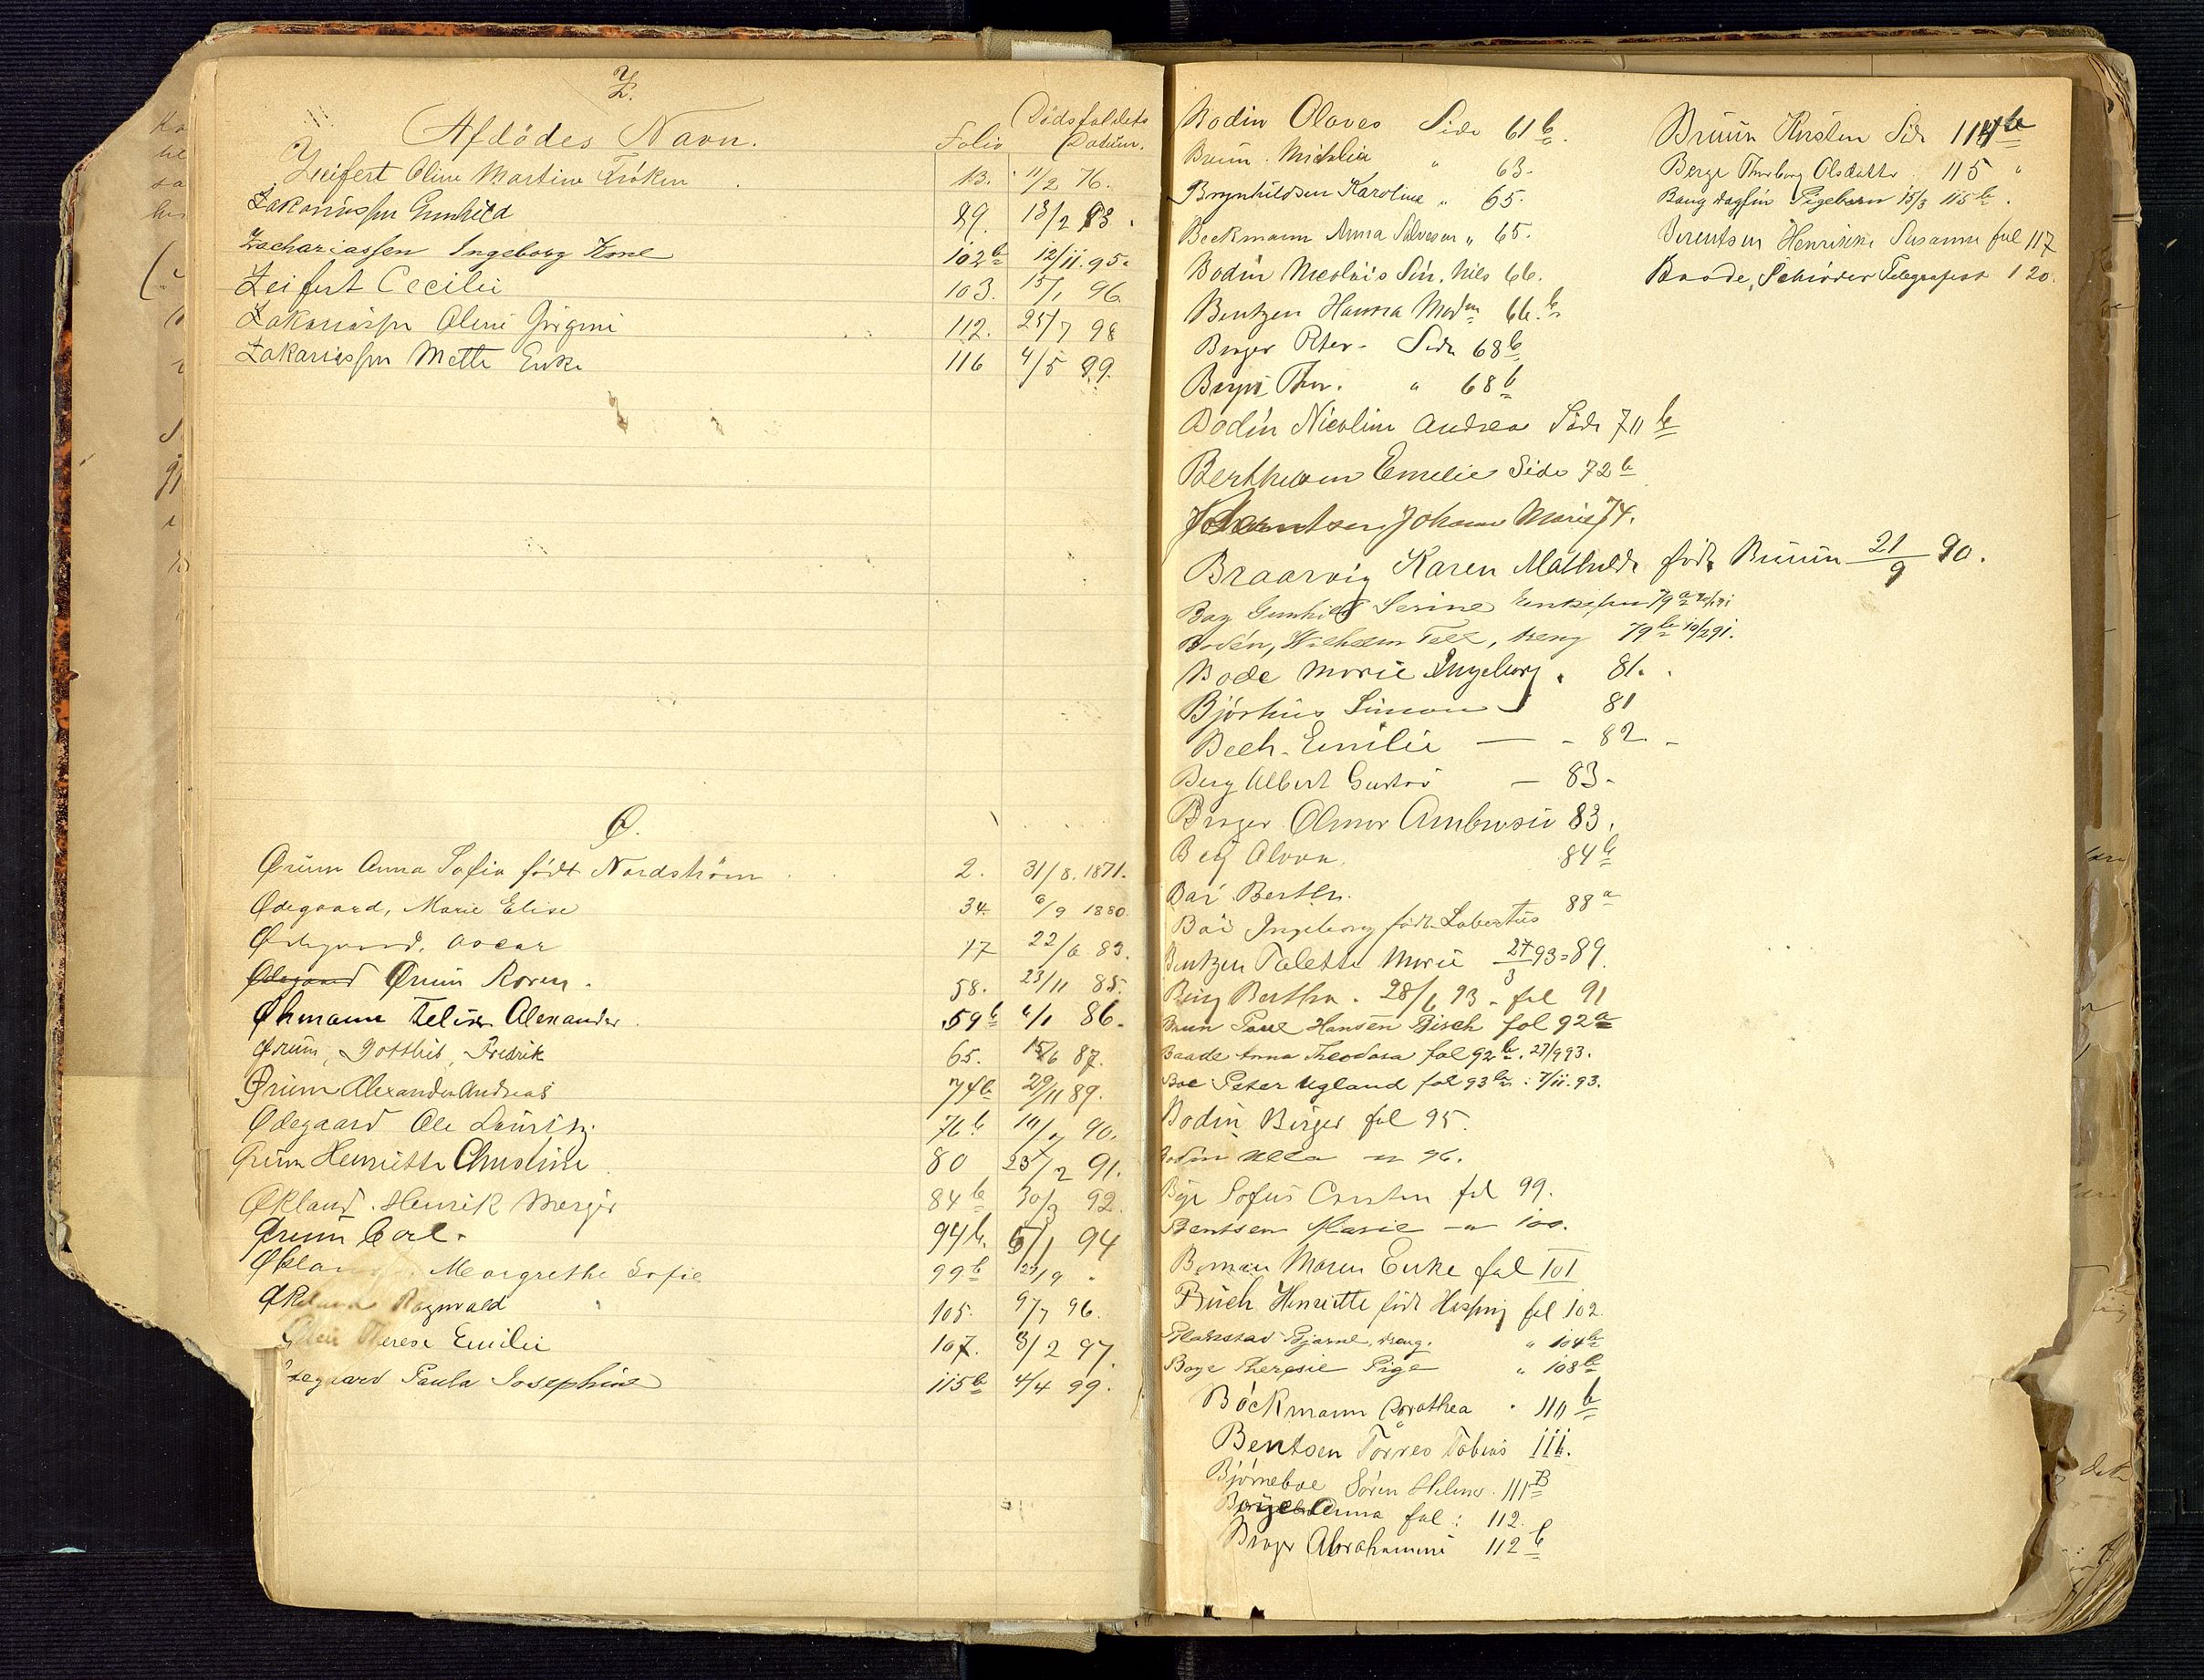 Z.
Afdödes Navn. Folio Dödsfaldets Datum.
Zeifert Oline Martine Fröken 13. 11/2 76.
Zakariassen Gunhild 89. 13/2 93.
Zachariassen Ingeborg 102b 12/11. 95.
Zeifert Cecilie 103. 15/1 96
Zakariassen Oline Jörgine 112. 25/7 98
Zakariassen Mette 116 4/5 99.
Ø.
Ørum Anna Sofia född Nordström 2. 31/8. 1871.
Ødegaard, Marie Elise 34. 6/9 1880.
Ødegaard, Oscar 17 22/6 83.
Ødegaard Ørum Karen. 58. 23/11 85.
Øhmann Alexander 59b 6/1 86.
Ørum, Gotthib, Fredrik 65. 15/6 87.
Ørum Alexander Andreas 74b 29/11 89.
Ødegaard Ole Lauritz 76b 90.
Ørum Henriette Christine 80 23/2 91.
Økland. Henrik 84b 30/3 92.
Ørum Carl. 94b. 5/1 94
Margrethe Sofie 99b 23/9 "
Ragnvald 105. 9/7 96.
Therese Emilie 107. 8/2 97.
Paula Josephine 115b 4/4 99.
Bodin Olaves Side 61b
Bruun. Michlia " 63.
Brynhildsen Karoline " 65.
Beckmann Anna " 65.
Bodin Nicolais Sön, Nils 66.
Bentzen Hanna Madm 66.b
Birger Peter - Side 68b
Thor. " 68b
Bodin Nicoline Andrea Side 71b
Berthesen Emelie Side 72b
Johanne Marie 74.
Braarvig Karen Mathilde född Bruun 21/9 90.
Bay Gunhild Serine 79a
Bodén, Wilhelm Tell, dreng 79b 10/2 91.
Bode Marie Ingeborg. 81.
Björhus Simon 81
Bech. Emilie — - 82. -
Berg Albert Gustav — 83.
Birger Olmar Ambrosie 83.
Berg 84b
Boi Berthe.
Boi Ingeborg född Lobertus 88a
Bentzen Talette Marie 27/3 93 = 89.
Berg Berthe. 28/6 93. fol 91
Bruun Paul Hansen Bisch fol 92a
Baade Anna Theodora fol 92b. 27/9 93.
Boe Peter Ugland fol 93b : 7/11. 93.
Bodin Birger fol 95.
Bodin 96.
Sofus fol 99.
Bentsen Marie — " 100.
Boman Maren fol 101
Buch Henriette född fol 102.
Bjarne, dreng. " 104b
Boye Theresie Pige " 108b
Böckmann Dorothea " 110b
Bentsen Törres Tobias 111.
Björneboe Sören Helmer. 111B
Boye Anna fol: 112.
Birger Abrahamine 112b
Bruun Kirsten Side 114b
Berge Thorborg Olsdatter 115 "
Bang Dagfin Pigebarn 15/3 115b.
Berentsen Henrikke Susanne fol 117
Baade, Schröder Telegrafist 120.